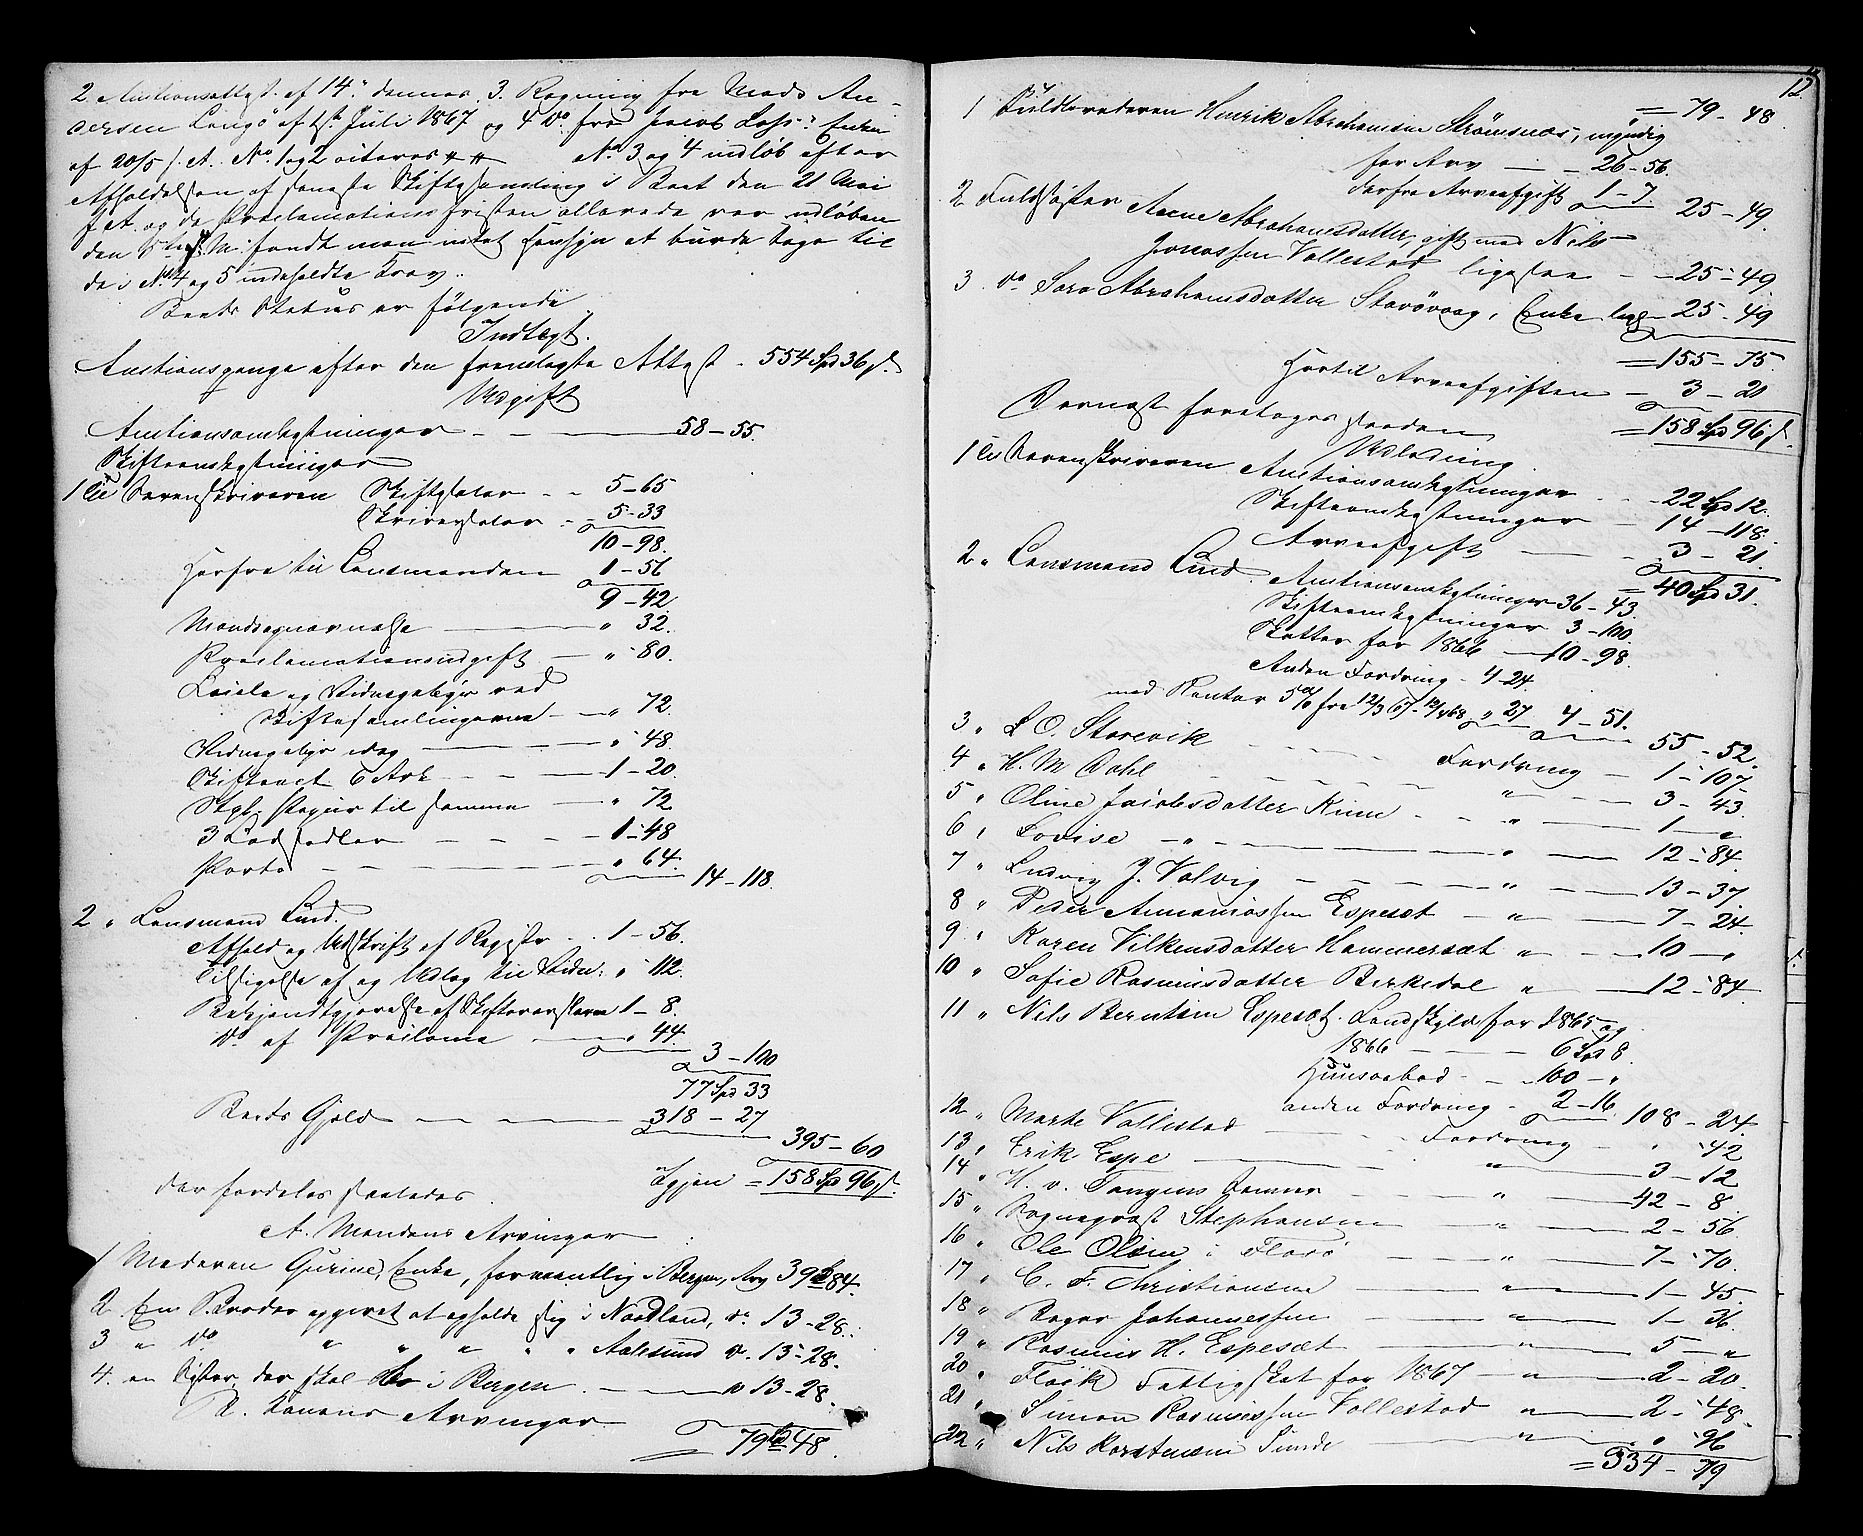 2. Auctionsattest af 14 dennes, 3. Regning fra Mads An-
dersen Langö af 1st Juli 1867 og 4 Do fra Jacob
af 20/5 f. A. No 1 og 2 oiteres No 3 og 4 indløb efter
Afholdelsen af seneste Skiftesamling i Boet den 21 Mai
f. A. og da Proclamationsfristen allerede var udløben
den fandt man intet Hensyn at burde tage til
de i No 4 og 5 indeholdte Krav.
Boets Status er følgende
Indtægt.
Auctionspenge efter den fremlagte Attest - 554 Spd 36 s.
Udgift
Auctionsomkostninger - 58-55.
Skifteomkostninger
1 Til Sorenskriveren Skiftesalær - - 5-65
Skriversalær - - 5-33
10-98.
Herfra til Lensmanden 1-56
9-42.
Mandsopnævnelse - " 32.
Proclamationsudgift - " 80.
Leiele og Vidnegebyr ved
Skiftesamlingerne - " 72.
Vidnegebyr idag - " 48.
Skifteact 6 Ark - - 1-20.
Stpl. Papir til samme - " 72
3 Lodsedler - - - 1-48
Porto - - - " 64.
14-118.
2 " Lensmand Lind.
Afhold og Udskrift af Registr. . . 1-56.
Tilsigelse af og Udlæg til Vidn. " 112.
Bekjendtgjørelse af Skifteværslerne 1-8.
Do af Proclama - " 44.
3-100
77 Spd 33
Boets Gjeld - - 318-27
395-60
Igjen = 158 Spd 96 s.
der fordeles saaledes.
A. Mandens Arvinger
1 Moderen Gurine, Enke, formentlig i Bergen, Arv 39 84.
2. En Broder opgivet at opholde sig i Nordland, do 13-28.
3 " do " " " " Aalesund do 13-28.
4. en Søster, der skal bo i Bergen - do 13-28.
B. Konens Arvinger
79 Spd 48.
12.
= 79-48.
1 Fuldbroderen Henrik Abrahamsen Strømsnes, myndig
for Arv - - 26-56.
Herfra Arveafgift 1-7. 25-49.
2 Fuldsøster Anne Abrahamsdatter, gift med Nils
Jonassen Vallestad ligesaa - - 25-49.
3. do Sara Abrahamsdatter Storøvaag, Enke lige - 25-49
= 155-75.
Hertil Arveafgiften - 3-21
= 158 Spd 96 s.
Dernæst foretoges saadan
Udlodning.
1 Til Sorenskriveren Auctionsomkostninger - - 22 Spd 12.
Skifteomkostninger - 14-118.
Arveafgift - - 3-21.
= 40 Spd 31.
2 " Lensmand Lind. Auctionsomkostninger 36-43.
Skifteomkostninger 3-100.
Skatter for 1866 - 10-98.
Anden Fordring - 4-24.
med Renter 5% fra 12/3 67 - 12/4 68 " 27 4-51.
55-52.
3 " L. O. Storevik - - - Fordring - 1-107
4 " H. M Dahl - - - " - 3-43.
5 " Oline Jacobsdatter Kinn - - " - 1-"
6 " Lovise - " - " - 12-84.
7 " Ludvig J. Valvig - - - " - 13-37
8 " Peder Annaniassen Espeset - " - 7-24.
9 " Karen Vilkensdatter Hammerset " - 10-"
10 " Sofie Rasmusdatter Birkedal " - 12-84.
11 " Nils Berntsen Espeset. Landskyld for 1865 og
1866 - - - 6 Spd 8.
Huusaabod - - 100-"
anden Fordring - 2-16.
108-24.
12 " Marte Vallestad - - Fordring - " 42
13 " Erik Espe - - " - 3-12
14 " H. v. Tangens - " - 42-8.
15 " Stephansen - " - 2-56
16 " Ole Olsen i Florø - " - 7-70.
17 " C. F. Christiansen - " - 1-45.
18 " Johannessen - " - 1-36.
19 " Rasmus H. Espeset - " - 5-"
20 " Fattigskat for 1867 - " - 2-20.
21 " Simon Rasmussen Vallestad " - 2-48.
22 " Nils Karstensen Sunde - " - " 96
= 334-79